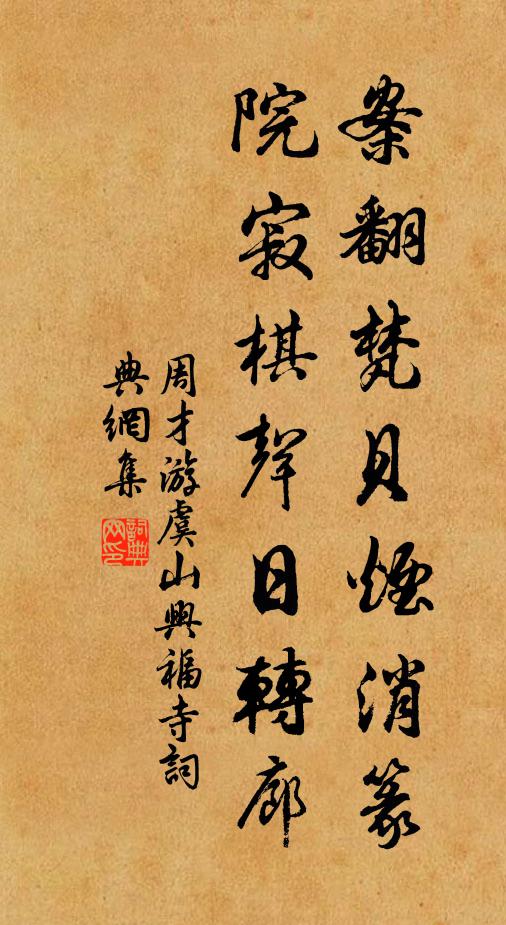 案翻梵貝煙消篆
院寂棋聲日轉廊
周才游虞山興福寺詞
典網集
詞典網印